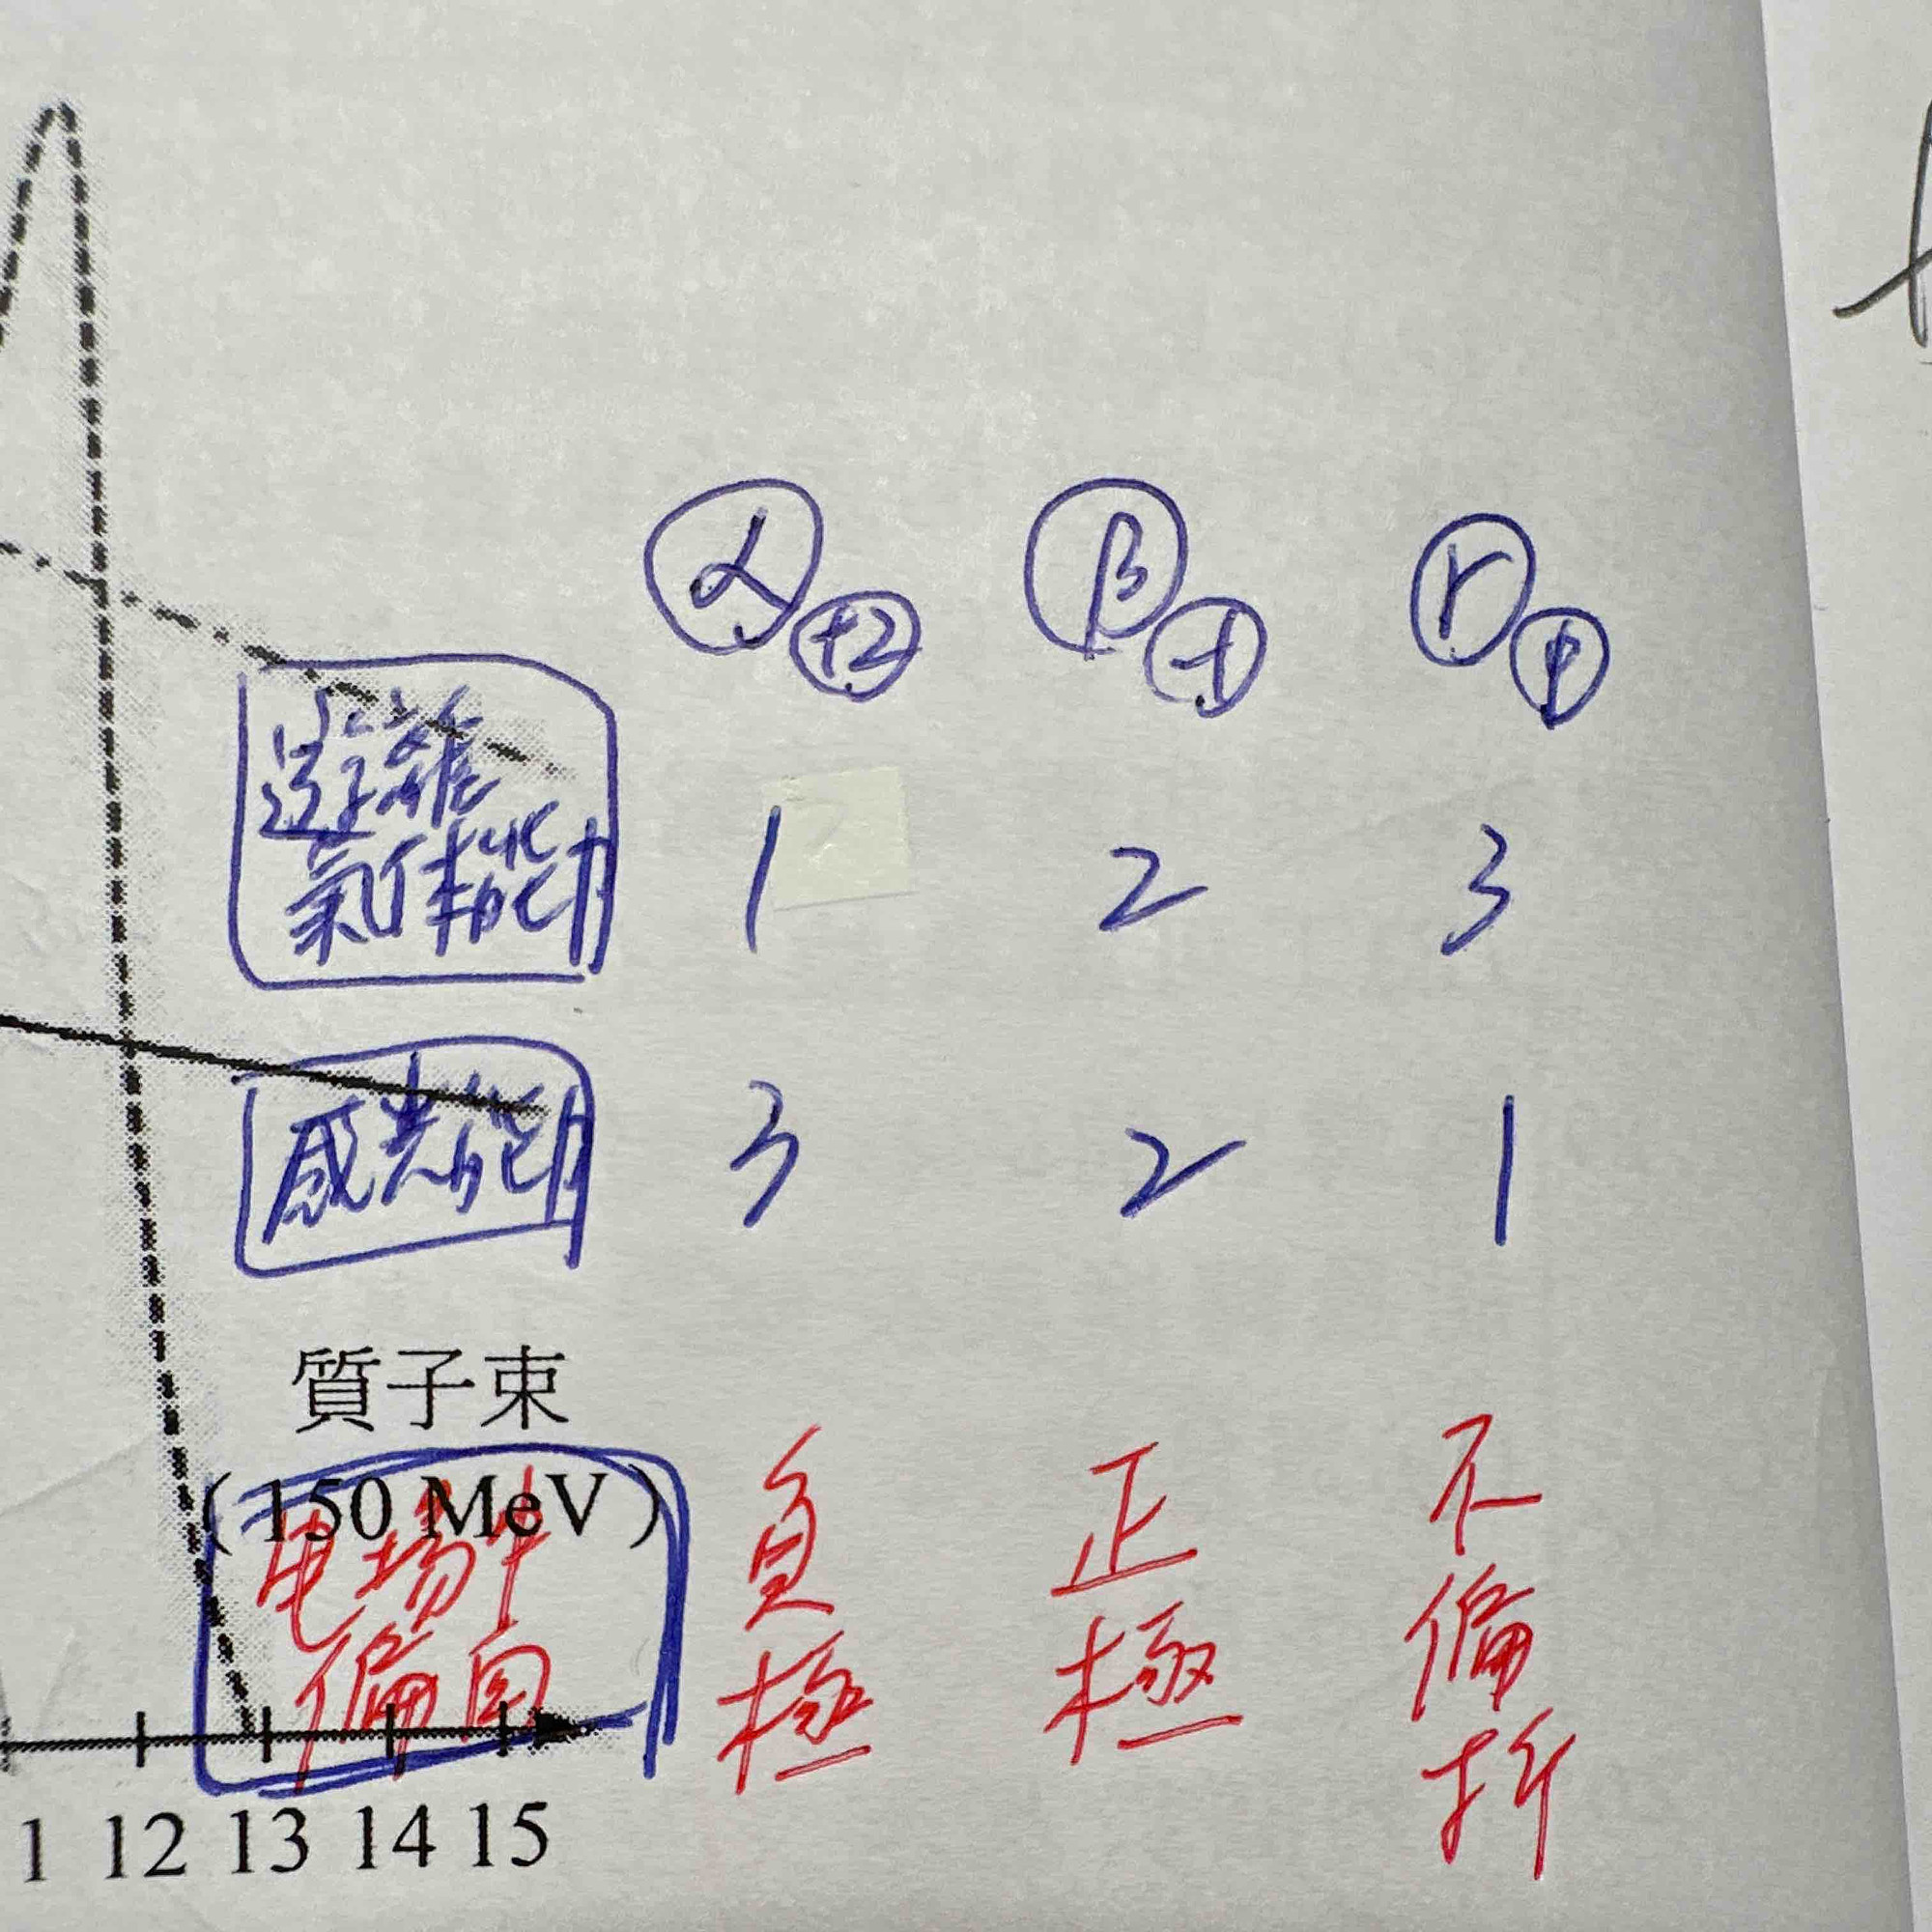 α +2 β -1 γ
遊離
氣体能力 1 2 3
感光能力 3 2 1
質子束
(150 MeV)
电場中
偏向
負極 正極 不偏折
1 12 13 14 15